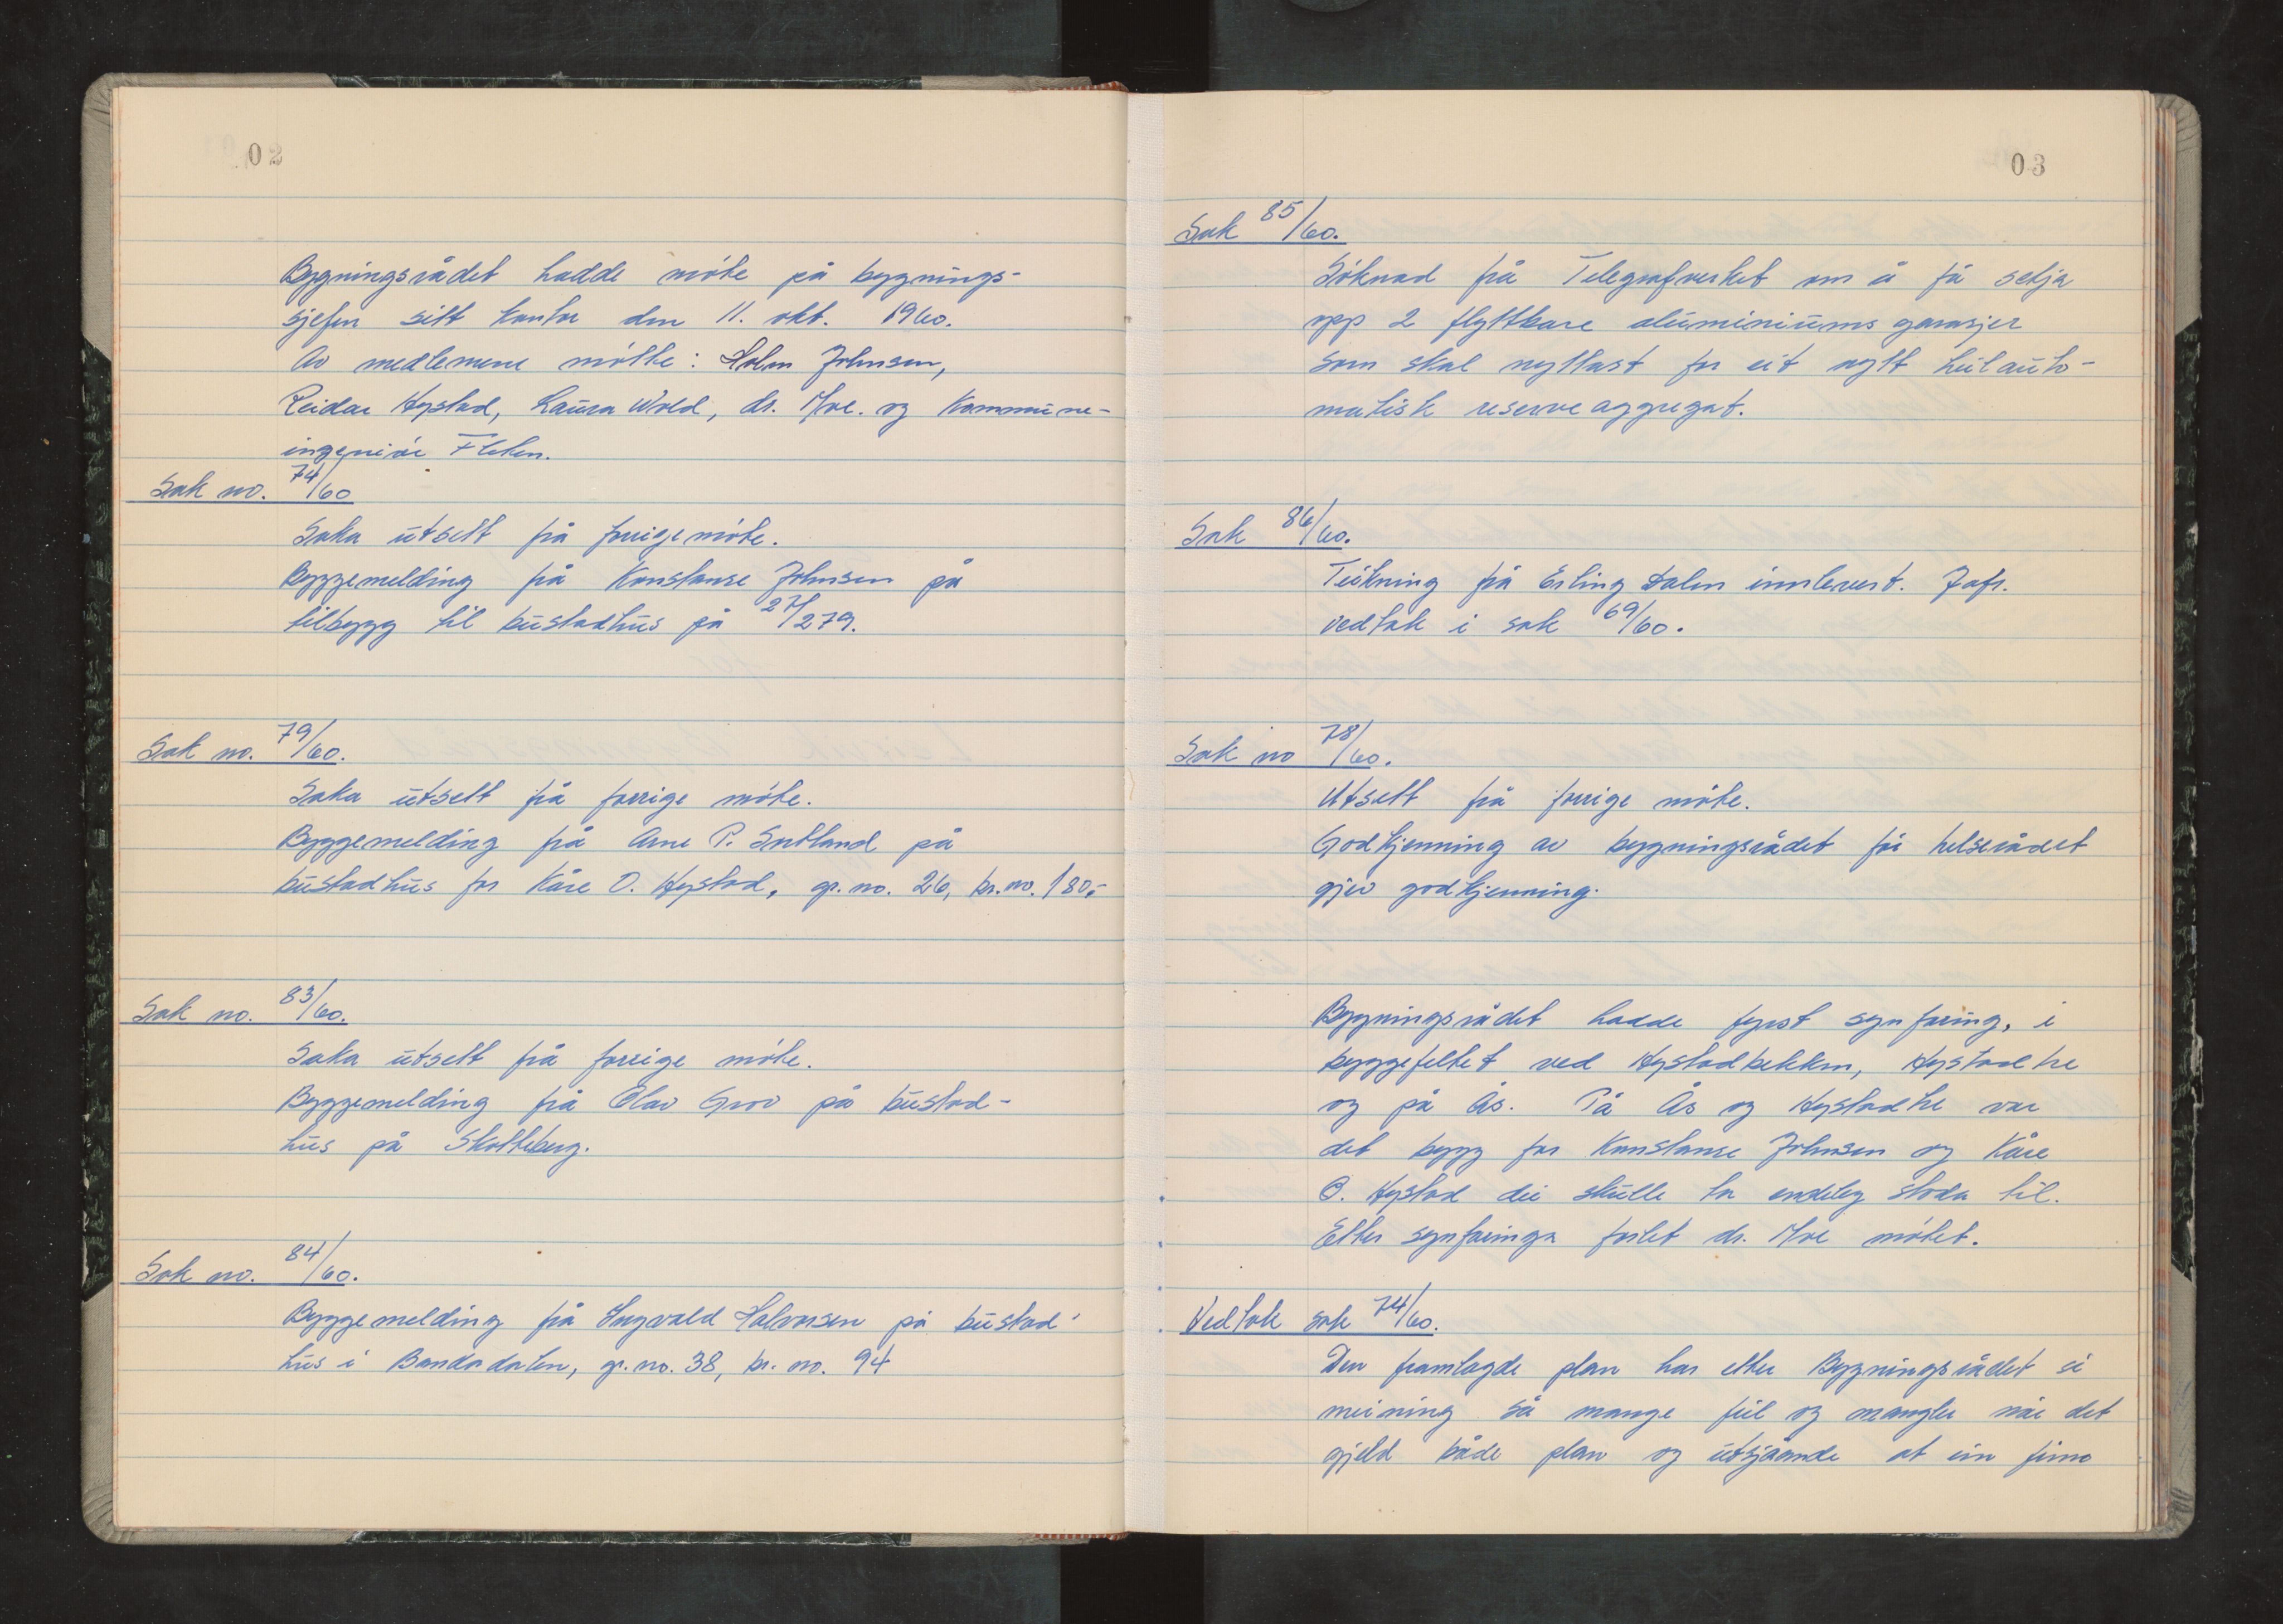 02
Bygningsrådet hadde møte på bygnings-
sjefen sitt kontor den 11. okt. 1960.
Av medlemene møtte: Holm Johnsen,
Reidar Hystad, Laura Wold, dr. Moe. og Kommune-
ingeniør Fleten.
Sak no. 74/60
Saka utsett frå forrige møte.
Byggemelding frå Konstanse Johnsen på
tilbygg til bustadhus på 27/279.
Sak no. 79/60.
Saka utsett frå forrige møte.
Byggemelding frå Arne P. Søtland på
bustadhus for Kåre O. Hystad, gr. no. 26, br. no. 180.-
Sak no. 83/60.
Saka utsett frå forrige møte.
Byggemelding frå Olav Grov på bustad-
hus på Skotteberg.
Sak no. 84/60.
Byggemelding frå Ingvald Halvorsen på bustad-
hus i Bandadalen, gr. no. 38, br. no. 94
03
Sak 85/60.
Søknad frå Telegrafverket om å få setja
opp 2 flyttbare aluminiums garasjer
som skal nyttast for eit nytt heilauto-
matisk reserveaggregat.
Sak 86/60.
Teikning frå Erling Dalen innlevert. Jafr.
vedtak i sak 69/60.
Sak no 78/60.
Utsett frå forrige møte.
Godkjenning av bygningsrådet får helserådet
gjev godkjenning.
Bygningsrådet hadde fyrst synfaring, i
byggefeltet ved Hystadbekken, Hystad tre
og på Ås. På Ås og Hystad tre var
det bygg for Konstanse Johnsen og Kåre
O. Hystad dei skulle ta endeleg stoda til.
Etter synfaringa forlet dr. Moe møtet.
Vedtak sak 74/60.
Den framlagde plan har etter Bygningsrådet si
meining så mange feil og mangler når det
gjeld både plan og utsjåande at ein finn